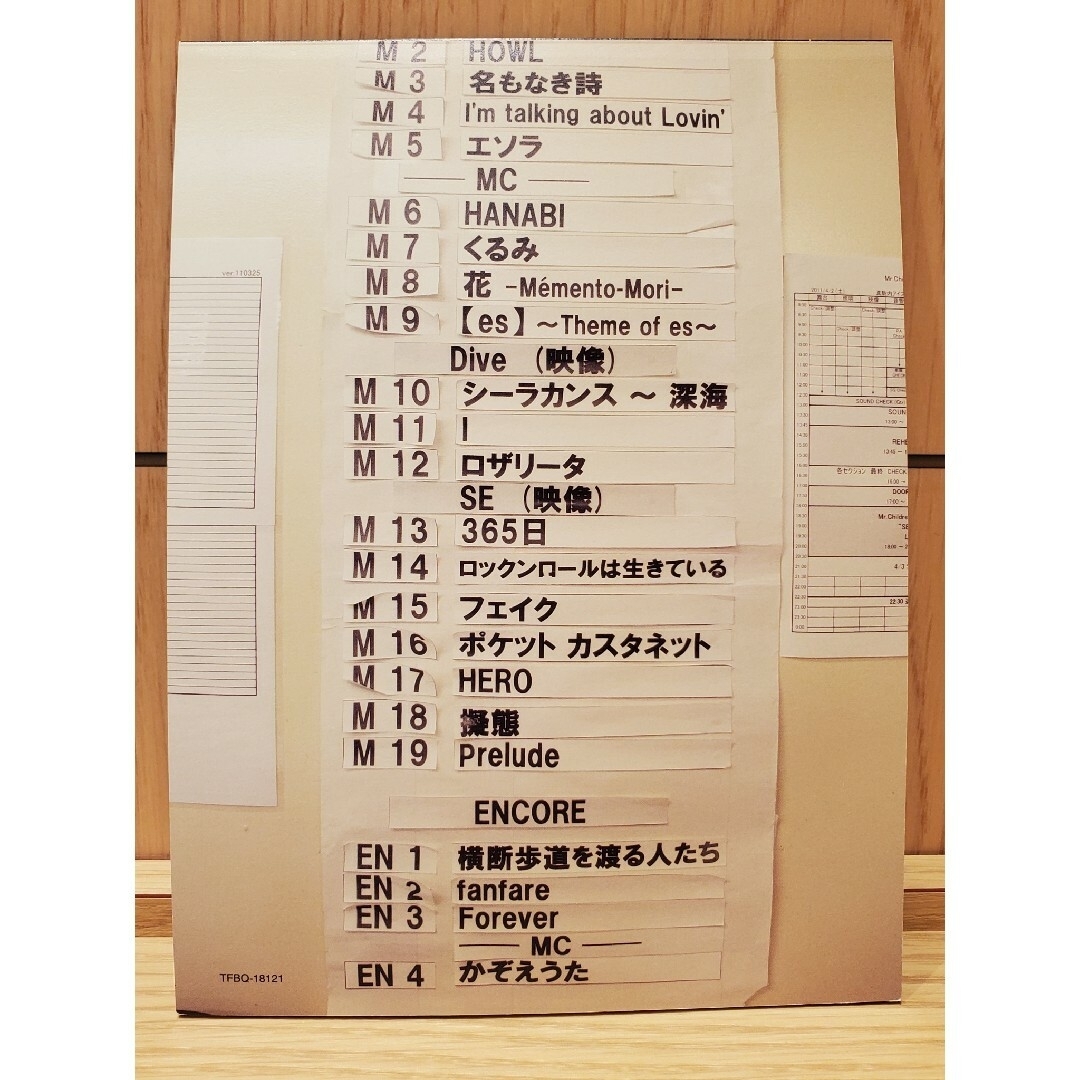 M 2 HOWL
M 3 名もなき詩
M 4 I'm talking about Lovin'
M 5 エソラ
── MC ──
M 6 HANABI
M 7 くるみ
M 8 花 -Mémento-Mori-
M 9 【es】 ～Theme of es～
Dive (映像)
M 10 シーラカンス ～ 深海
M 11 I
M 12 ロザリータ
SE (映像)
M 13 365日
M 14 ロックンロールは生きている
M 15 フェイク
M 16 ポケット カスタネット
M 17 HERO
M 18 擬態
M 19 Prelude
ENCORE
EN 1 横断歩道を渡る人たち
EN 2 fanfare
EN 3 Forever
── MC ──
EN 4 かぞえうた
TFBQ-18121
ver.110325
Mr.Chi
SOUND CHECK
SOUN
REHE
CHECK
DOOR
Mr.Childre
"SE
L
4/3
22:30